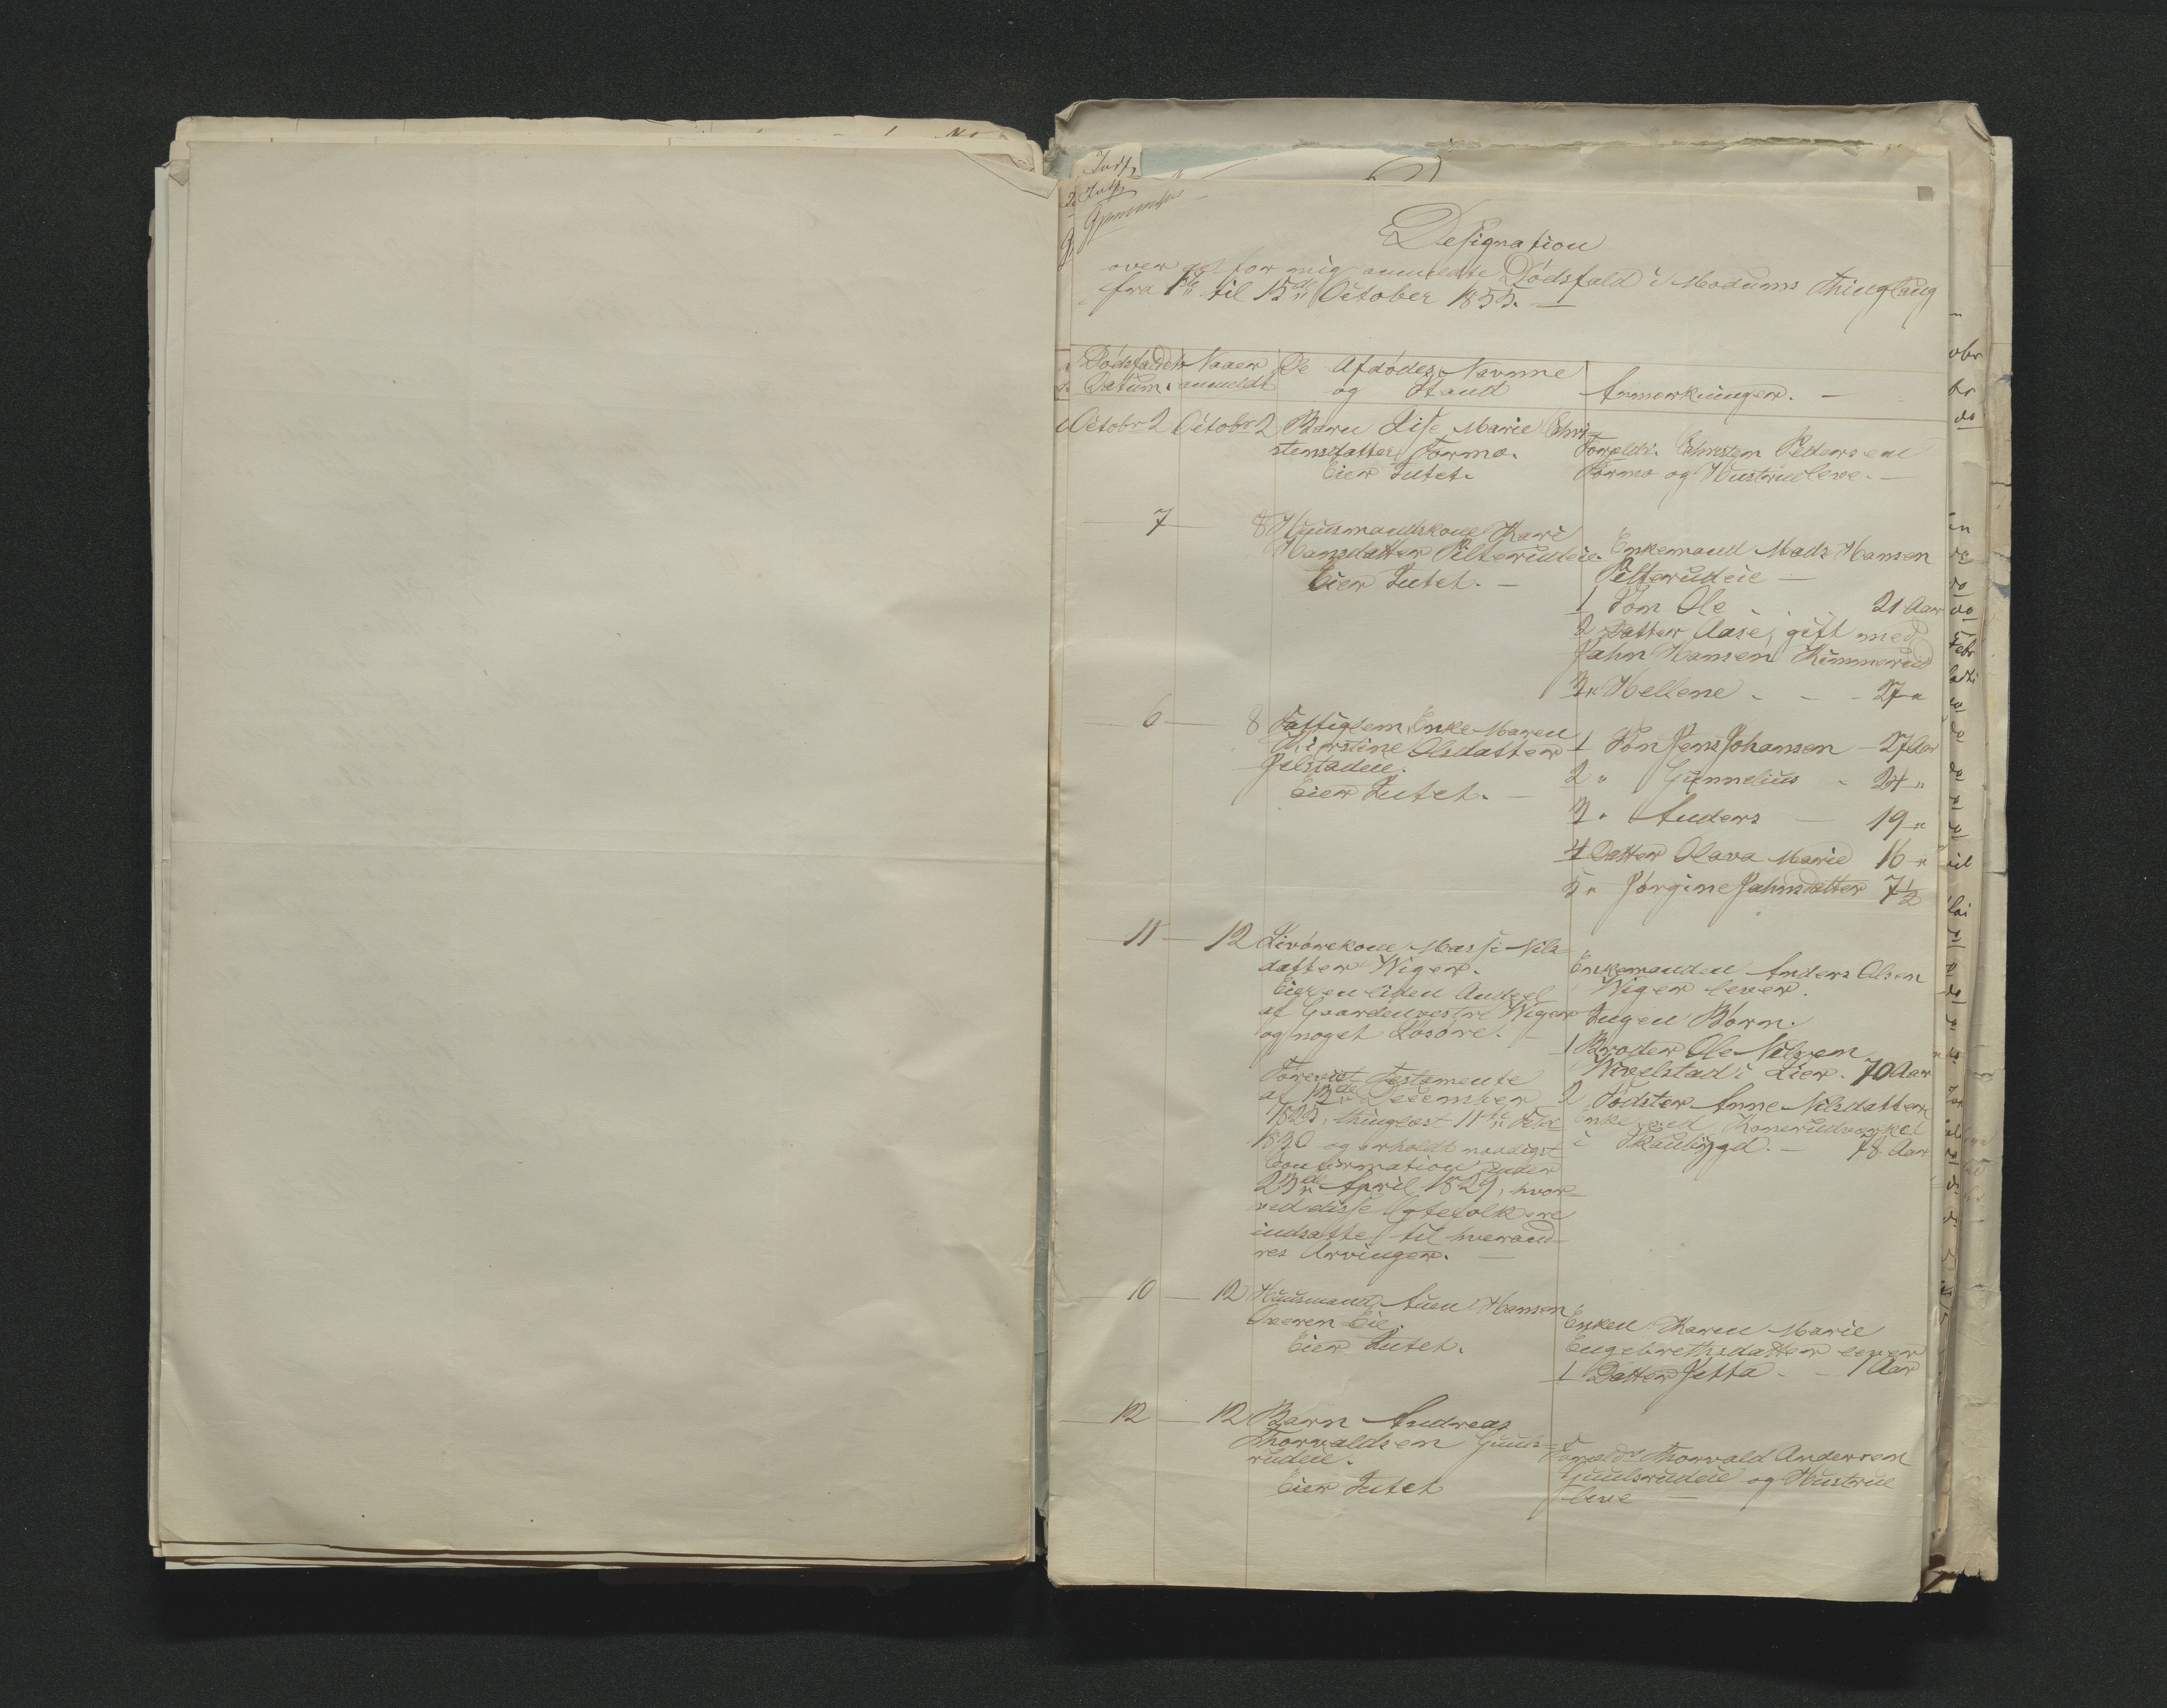 Designation
over de for mig anmeldte Dødsfald i Modums Thinglaug
fra 1ste til 15de October 1855. —
Dødsfaldets Datum.
Naar anmeldt
De Afdødes Navne og Stand
Anmærkninger. —
Octobr 2 Octobr 2 Barn Lise Marie Chri-
stensdatter Formo.
Eier Intet.
Forældr. Christen Pedersen
Formo og Hustru leve. —
7 — 8 Huusmandskone Kari
Hansdatter Pilterudeie.
Eier Intet. —
Enkemand Mads Hansen
Pilterudeie —
1 Søn Ole - - - 21 Aar
2 Datter Aase, gift med
Jahn Hansen Kimmerud
3 " Hellene - - - 27 "
6 — 8 Fattiglem Enke Maren
Kirstine Olsdatter
Jelstadeie.
Eier Intet. —
1 Søn Jens Johansen — 27 Aar
2 " Gunnelius - 24 "
3 " Anders — 19 "
4 Datter Olava Marie 16 "
5 " Jørgine Jahnsdatter 7½
11 — 12 Livørekone Massi Nils-
datter Wiger.
Eier en liden Andeel
af Gaarden vestre Wiger
og noget Løsøre. —
Foreviist Testamente
af 13de December
1825, thinglæst 11te Febr
1830 og erholdt naadigst
Confirmation under
23de April 1829, hvor-
ved disse Ægtefolk ere
indsatte til hverand-
res Arvinger. —
Enkemanden Anders Olsen
Wiger lever.
Ingen Børn.
1 Broder Ole Nilsen
Wivelstad i Lier. 70 Aar
2 Södster Anne Nilsdatter
Enke ved Konerudværket
i Skoubygd. — 78 Aar
10 — 12 Huusmand Auen Hansen
Overen Eie.
Eier Intet.
Enken Karen Marie
Engebrethsdatter lever
1 Datter Jetta - - 1 Aar
12 — 12 Barn Andreas
Thorvaldsen Guuls-
rudeie.
Eier Intet
Forældr Thorvald Andersen
Guulsrudeie og Hustrue
leve —